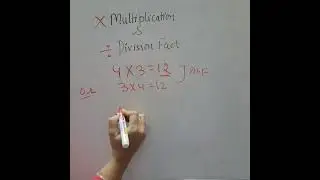 × Multiplication
&
÷ Division Fact
4 × 3 = 12
3 × 4 = 12